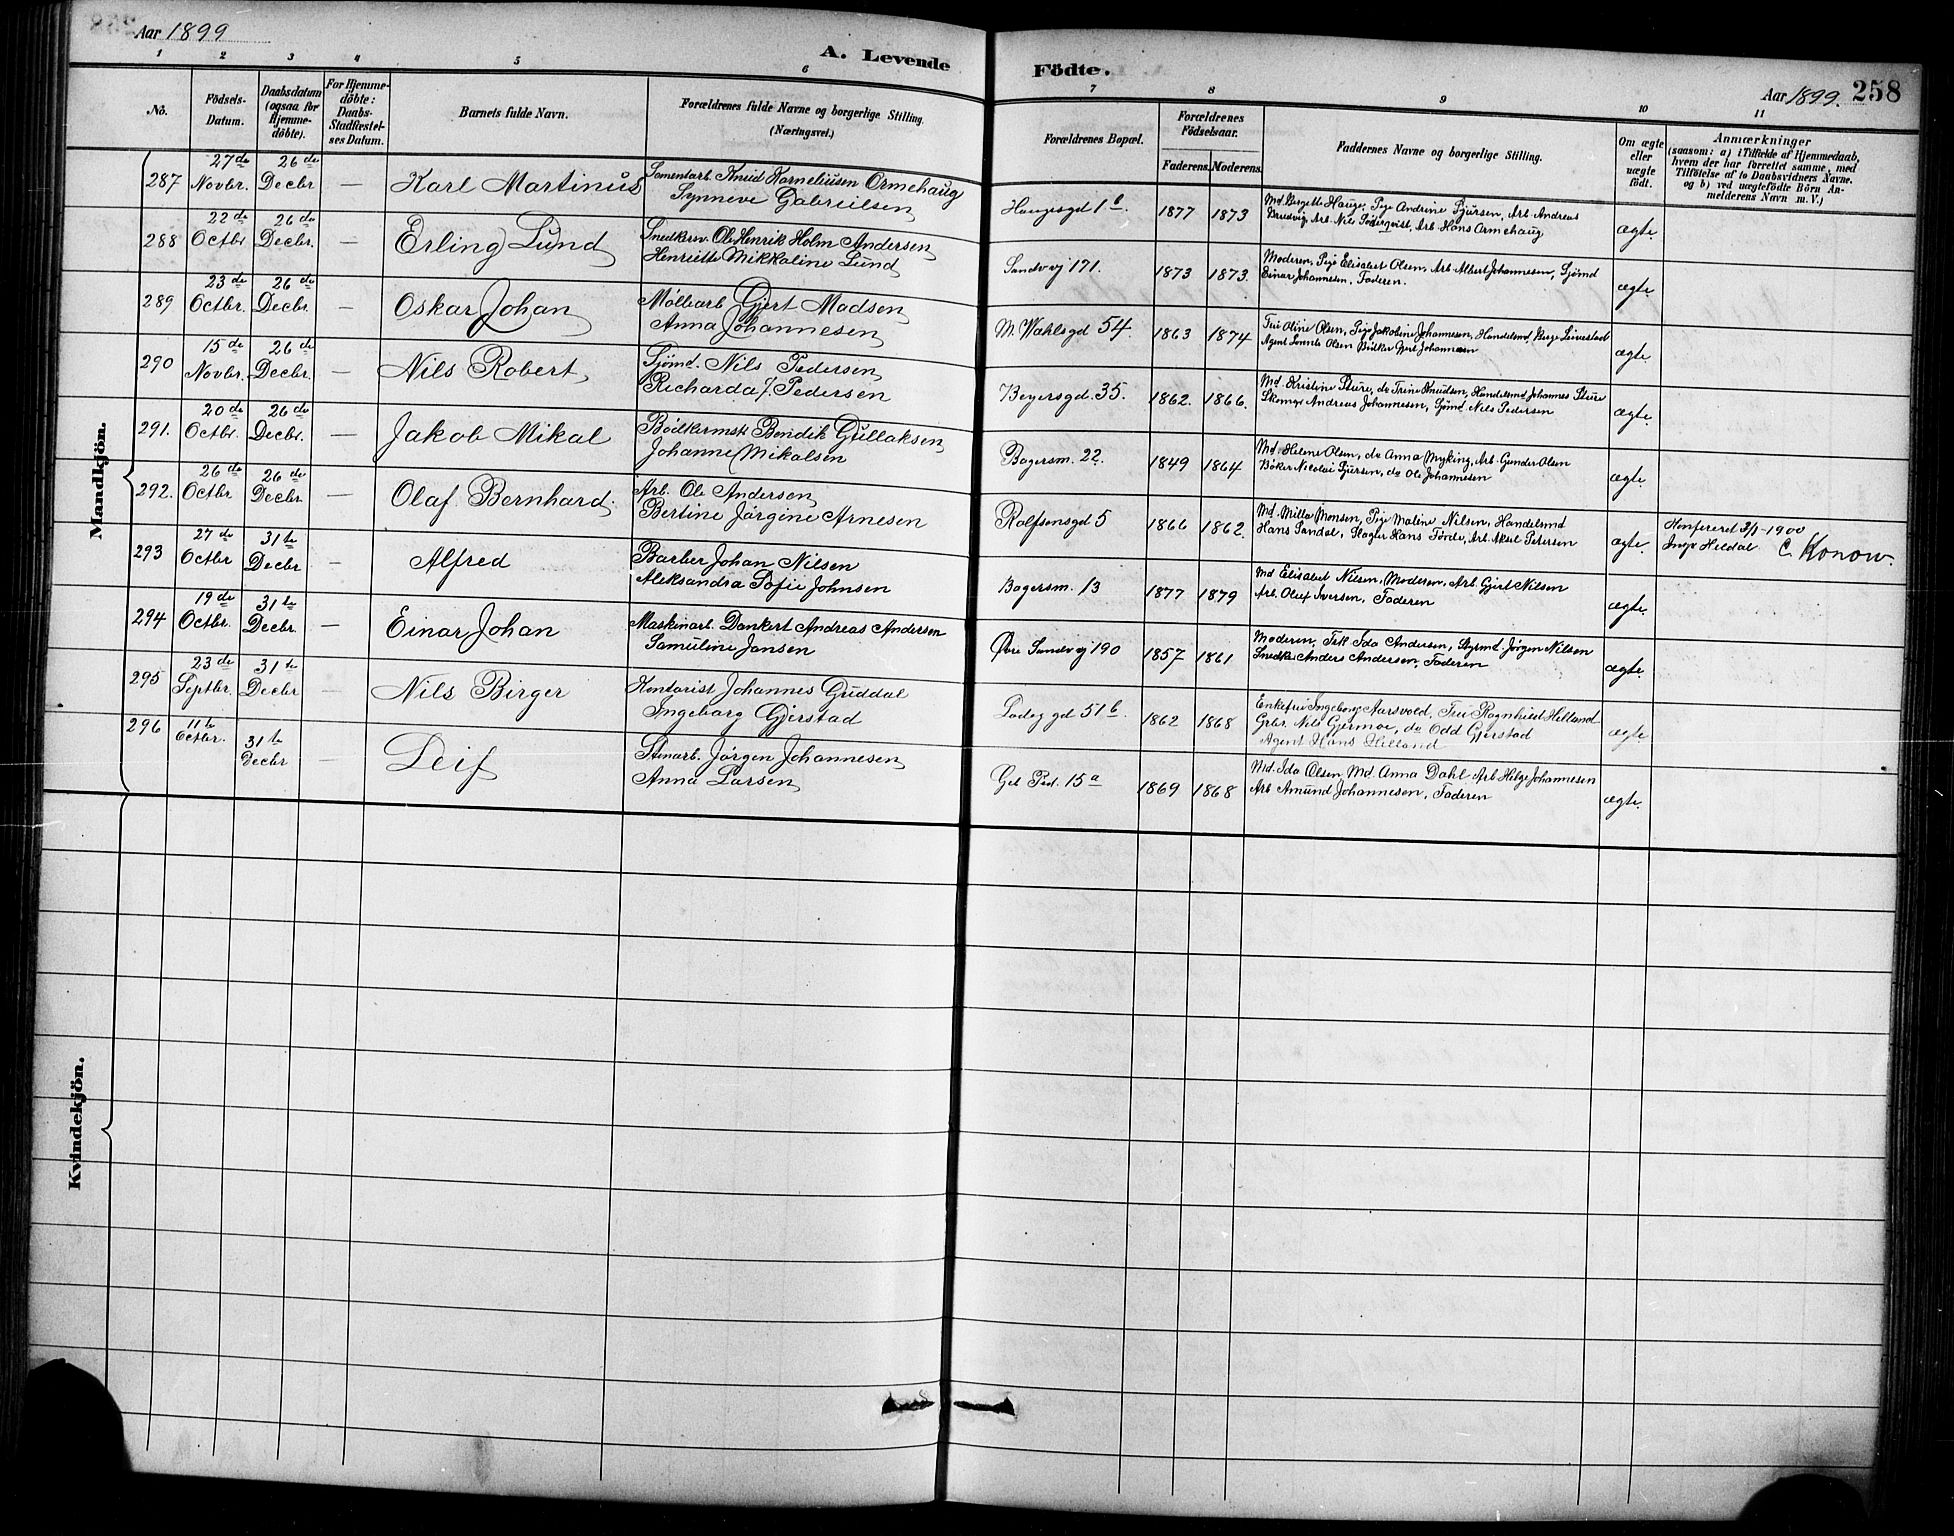 Aar 1899
A. Levende Födte.
Aar 1899. 258
1 2 3 4 5 6 7 8 9 10 11
No.
Födsels-
Datum.
Daabsdatum
(ogsaa for
Hjemme-
döbte).
For Hjemme-
döbte:
Daabs-
Stadfæstel-
ses Datum.
Barnets fulde Navn.
Forældrenes fulde Navne og borgerlige Stilling.
(Næringsvei.)
Forældrenes Bopæl.
Forældrenes
Födselsaar.
Faderens. Moderens.
Faddernes Navne og borgerlige Stilling.
Om ægte
eller
uægte
födt.
Anmærkninger
(saasom: a) i Tilfælde af Hjemmedaab,
hvem der har forrettet samme, med
Tilföielse af to Daabsvidners Navne.
og b) ved uægtefödte Börn An-
melderens Navn m. V.)
Mandkjön.
287 27de Novbr. 26de Decbr — Karl Martinus
Sementarb. Knud Korneliusen Ormehaug
Synneve Gabrielsen
Haugesgd 1b. 1877 1873
Md. Birgitte Hauge, Pige Andrine Sjursen, Arb. Andreas
Brudvig Arb. Nils Söderqvist, Arb. Hans Ormehaug
ægte
288 22de Octbr 26de Decbr. — Erling Lund
Snedkersv. Ole Henrik Holm Andersen
Henriette Mikkaline Lund
Sandvvj 171. 1873 1873.
Moderen, Pige Elisabet Olsen, Arb. Albert Johannesen, Sjömd
Einar Johannesen, Faderen.
ægte
289 23de Octbr. 26de Decbr. — Oskar Johan
Møllearb Gjert Madsen
Anna Johannesen
M. Wahlsgd 54. 1863 1874
Fru Oline Olsen, Pige Jakobine Johannesen, Handelsmd Birge Leivestad
Agent Olsen Bödker Gjert Johannesen
ægte
290 15de Novbr. 26de Decbr. — Nils Robert
Sjömd. Nils Pedersen
Richarda f. Pedersen
Beyersgd. 35. 1862. 1866.
Md. Kristine Sture, do Trine Knudsen, Handelsmd Johannes Sture
Skomgr Andreas Johannesen, Sjömd. Nils Pedersen
ægte
291. 20de Octbr. 26de Decbr. — Jakob Mikal
Bödkermstr Bendik Gullaksen
Johanne Mikalsen
Bagersm. 22. 1849 1864
Md. Helene Olsen, do Anna Myking, Arb. Gunder Olsen
Böker Nicolai Sjursen, do Ole Johannesen
ægte
292. 26de Octbr 26de Decbr — Olaf Bernhard
Arb. Ole Andersen
Bertine Jörgine Arnesen
Rolfsensgd 5 1866 1862.
Md. Milla Monsen, Pige Maline Nilsen, Handelsmd
Hans Sandal, Slagter Hans Förde, Arb. Aksel Petersen
ægte
Konfereret 3/1-1900
Ingv Heldal C Konow.
293 27de Octbr 31te Decbr — Alfred
Barber Johan Nilsen
Aleksandra Sofie Johnsen
Bagersm. 13 1877 1879
Md Elisabet Nilsen, Moderen, Arb. Gjert Nilsen
Arb. Oluf Iversen, Faderen
ægte
294 19de Octbr. 31te Decbr. — Einar Johan
Maskinarb. Dankert Andreas Andersen
Samuline Jansen
Øvre Sandvvj 190 1857 1861
Moderen, Frk Ida Andersen, Styrmd. Jörgen Nilsen
Snedker Anders Andersen, Faderen
ægte
295 23de Septbr. 31te Decbr — Nils Birger
Kontorist Johannes Guddal
Ingeborg Gjerstad
Ladeg gd 51b. 1862 1868
Enkefru Ingeborg Aarsvold, Fru Ragnhild Helland
Grbr. Nils Gjermoe, do Odd Gjerstad
Agent Hans Helland
ægte
296 11te Octbr. 31te Decbr — Leif
Stenarb. Jörgen Johannesen
Anna Larsen
Gel Præd. 15a 1869 1868
Md. Ida Olsen, Md. Anna Dahl Arb Helge Johannesen
Arb Amund Johannesen, Faderen
ægte.
Kvindekjön.